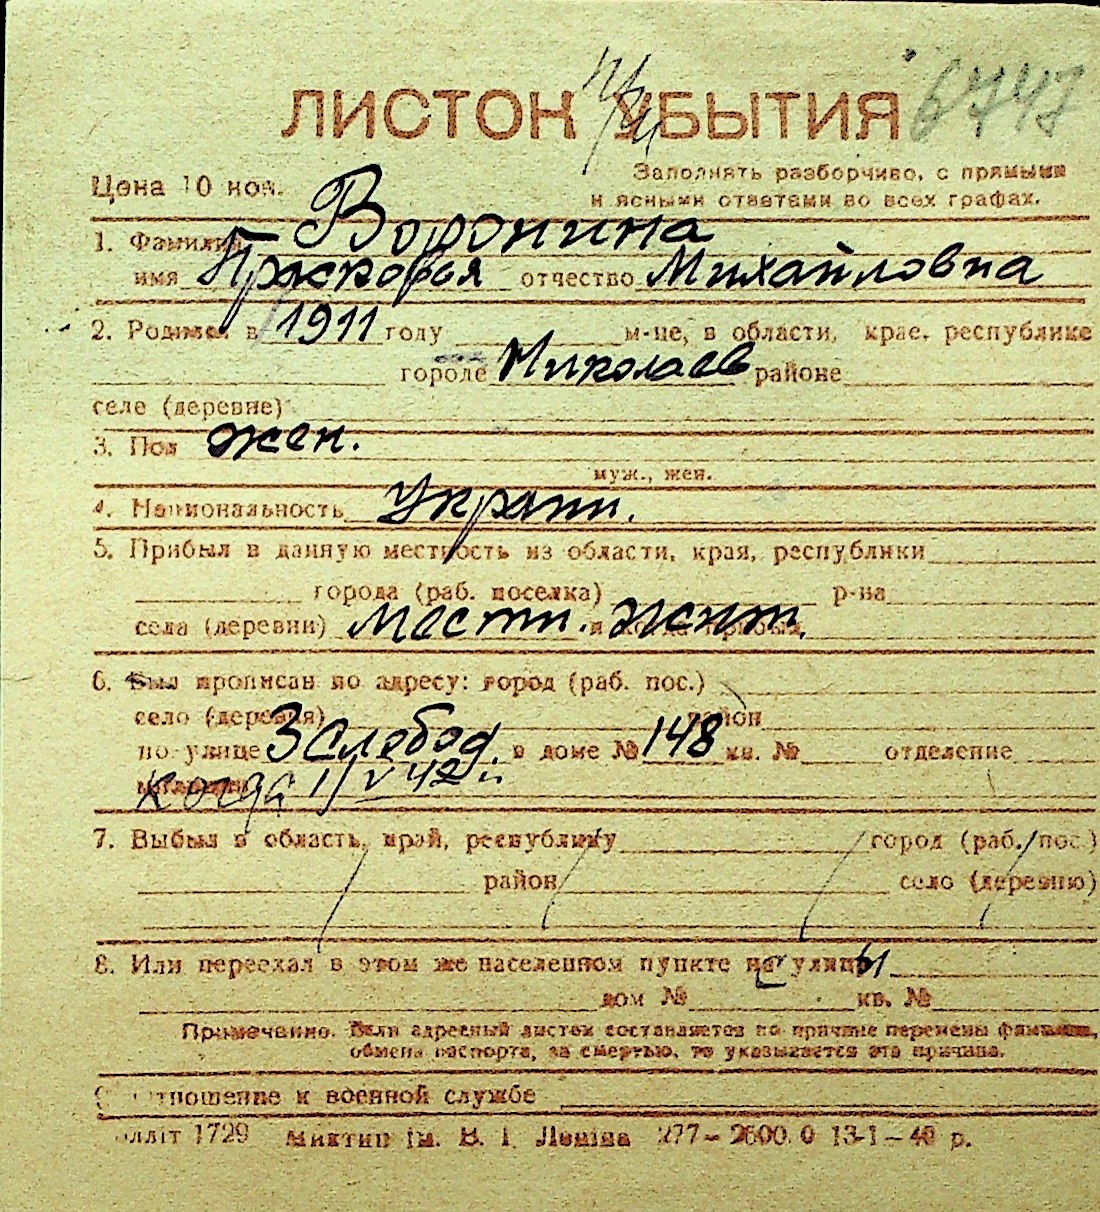 ЛИСТОК УБЫТИЯ 6747
Цена 10 коп.
Заполнять разборчиво, с прямыми
и ясными ответами во всех графах.
1. Фамилия Воронина
имя Прасковья отчество Михайловна
2. Родился в 1911 году м-це, в области, крае, республике
городе Николаев районе
селе (деревне)
3. Пол жен.
муж., жен.
4. Национальность Украин.
5. Прибыл в данную местность из области, края, республики
города (раб. поселка) р-на
села (деревни) Местн. жит.
6. Был прописан по адресу: город (раб. пос.)
село (деревня) район
по улице 3 Слобод. в доме № 148 кв. № отделение
когда 1/V 42
7. Выбыл в область, край, республику город (раб. пос.)
район село (деревню)
8. Или переехал в этом же населенном пункте улицы
дом № кв. №
Примечание. Если адресный листок составляется по причине перемены фамилии,
обмена паспорта, за смертью, то указывается эта причина.
Отношение к военной службе
1729 Миктип ім. В. І. Леніна 277 – 2600.0 13-1 – 40 р.